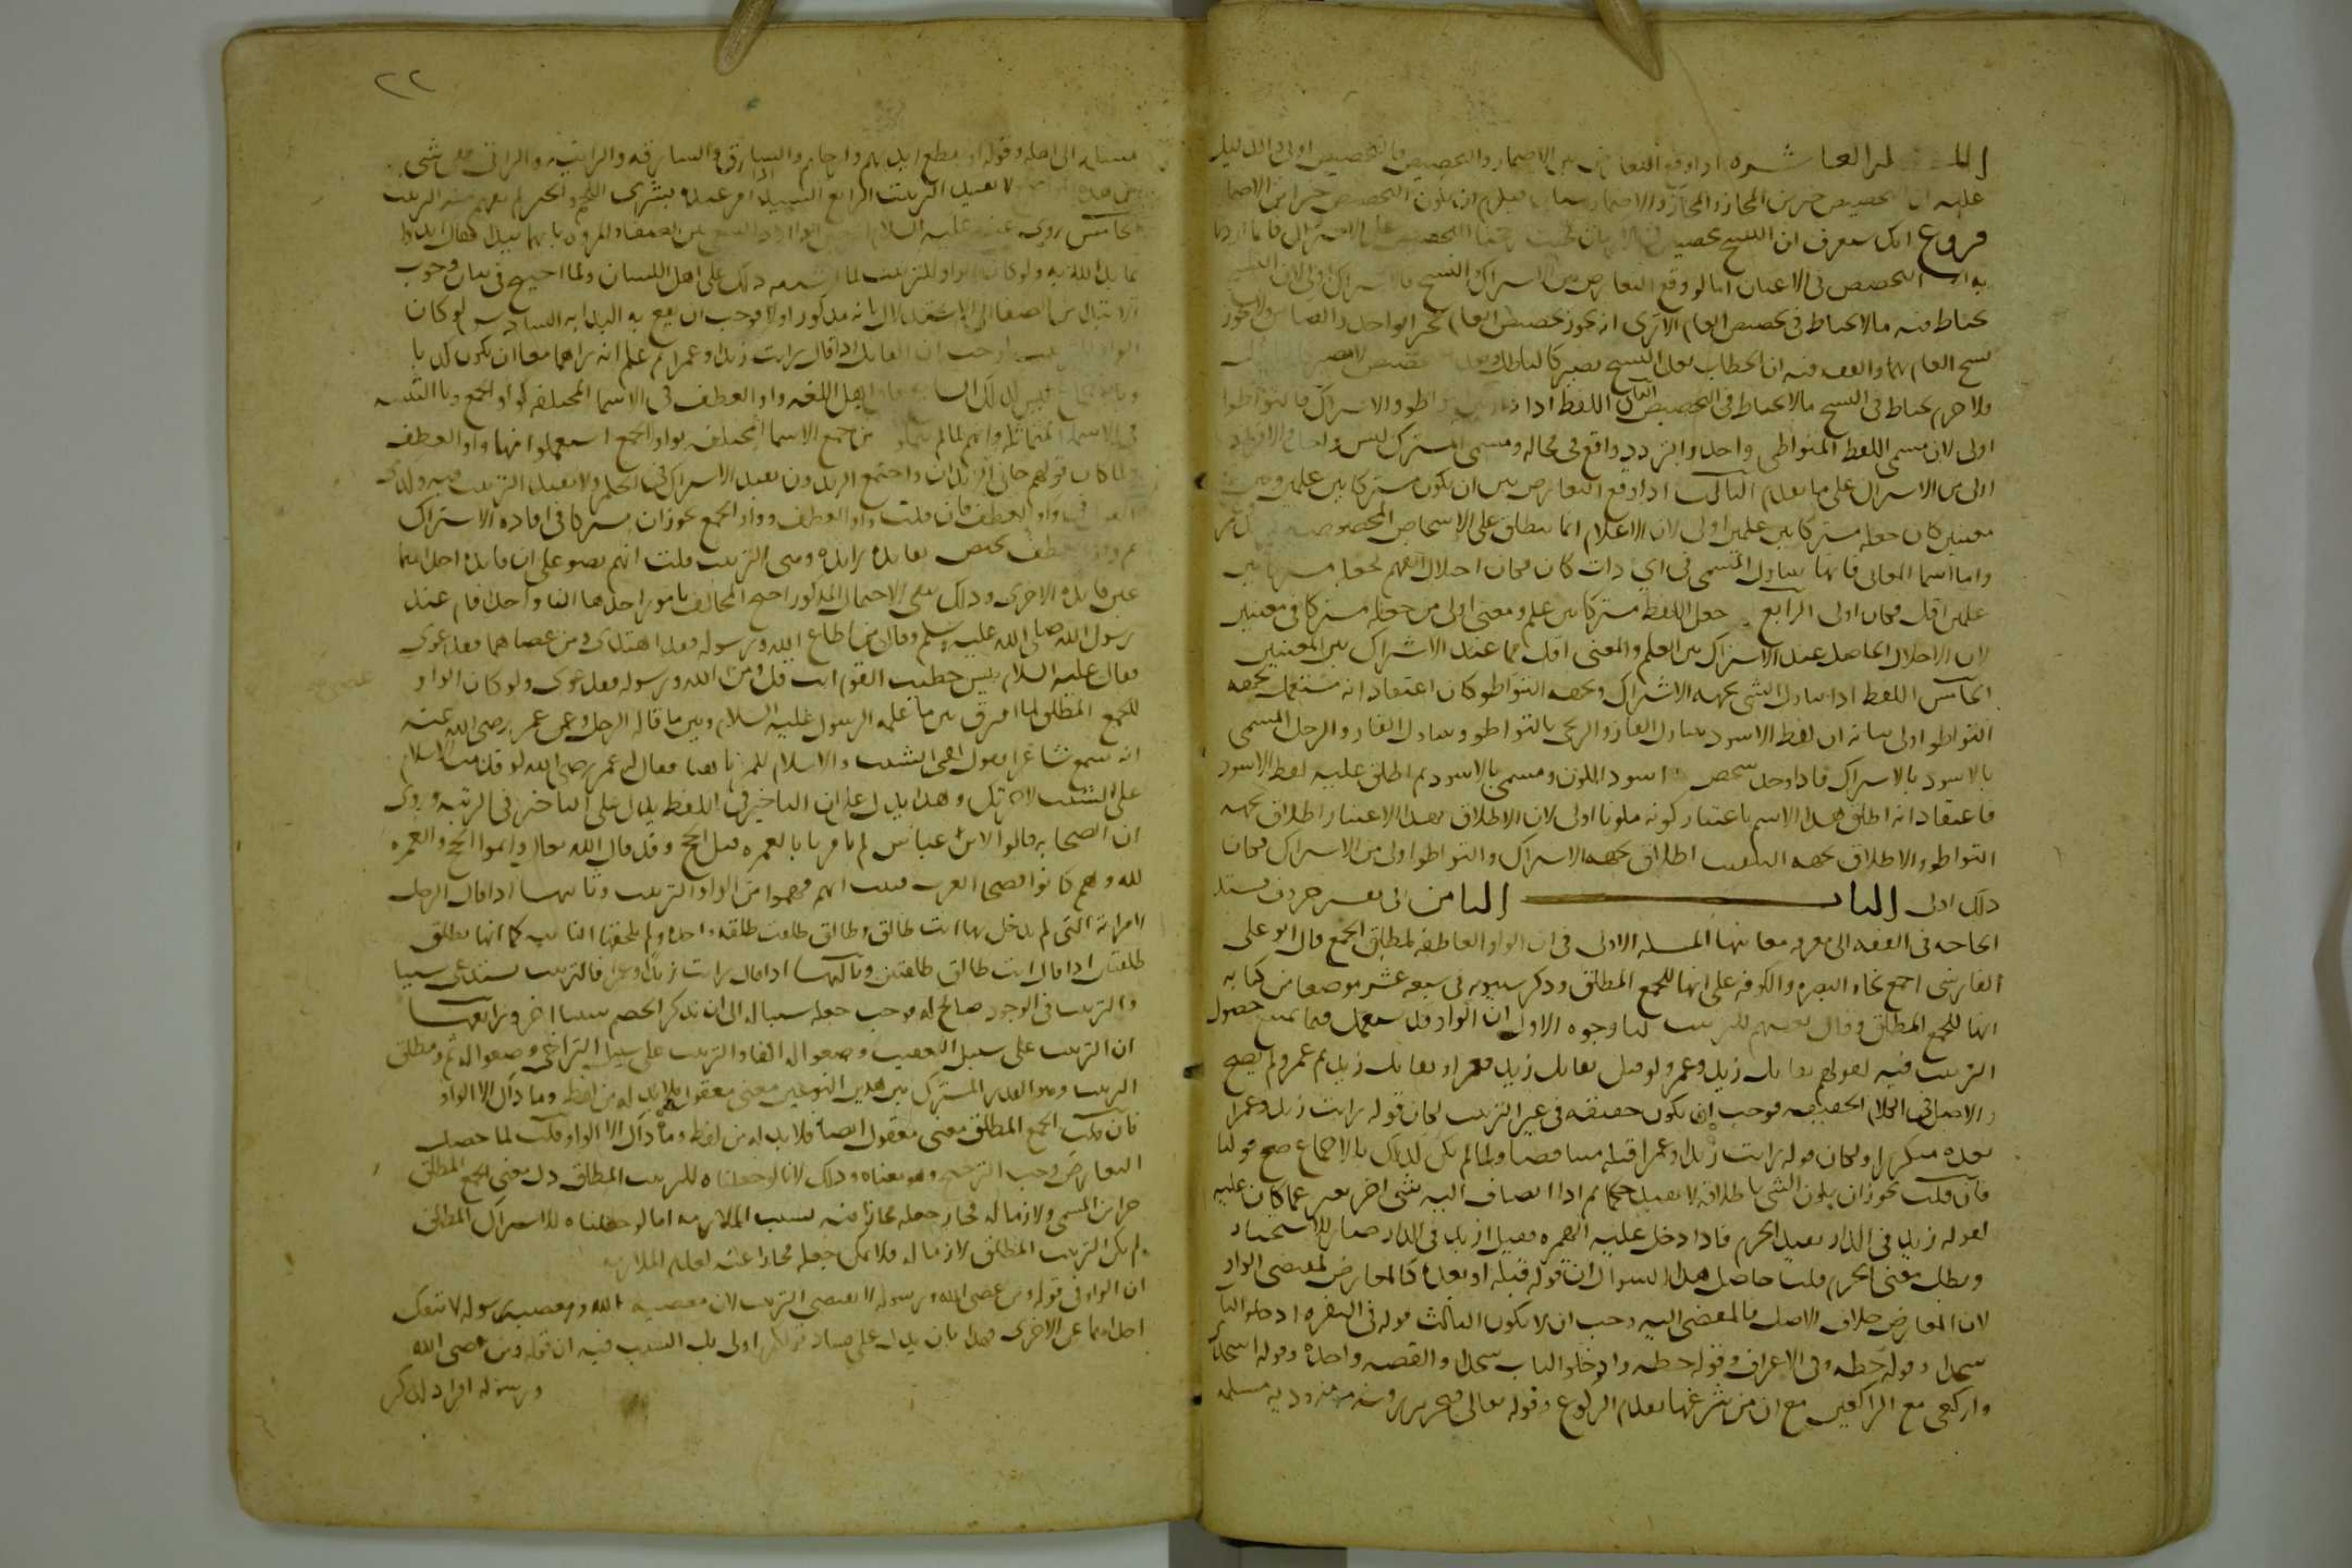 المسألة العاشرة اذا وقع التعارض بين الاضمار والتخصيص فالتخصيص اولى والدليل
عليه ان التخصيص خير من المجاز والمجاز والاضمار سيان فيلزم ان يكون التخصيص خيرا من الاضمار
فروع انك ستعرف ان النسخ تخصيص في الازمان فحيث رجحنا التخصيص على الاشتراك فانما اردنا
به التخصيص في الاعيان اما لو وقع التعارض بين الاشتراك والنسخ فالاشتراك اولى لان النسخ
يحتاط فيه ما لا يحتاط في تخصيص العام الا ترى انه يجوز تخصيص العام بخبر الواحد والقياس ولا يجوز
نسخ العام بهما والفقه فيه ان الخطاب بعد النسخ يصير كالباطل وبعد التخصيص لا يصير كالباطل
فلا جرم يحتاط في النسخ ما لا يحتاط في التخصيص الثاني اللفظ اذا دار بين التواطؤ والاشتراك فالتواطؤ
اولى لان مسمى اللفظ المتواطئ واحد والتردد واقع في محاله ومسمى المشترك ليس واحدا فالافراد
اولى من الاشتراك على ما تقدم الثالث اذا وقع التعارض بين ان يكون مشتركا بين علمين وبين
معنيين كان جعله مشتركا بين علمين اولى لان الاعلام انما تنطلق على الاشخاص المخصوصة
واما اسما المعاني فانها تتناول المسمى في اي ذات كان فكان اختلال الفهم بجعله مشتركا بين
علمين اقل فكان اولى الرابع جعل اللفظ مشتركا بين علم ومعنى اولى من جعله مشتركا في معنيين
لان الاختلال الحاصل عند الاشتراك بين العلم والمعنى اقل مما عند الاشتراك بين المعنيين
الخامس اللفظ اذا تناول الشي بجهة الاشتراك وبجهة التواطؤ كان اعتقاد انه مستعمل بجهة
التواطؤ اولى بيانه ان لفظ الاسود يتناول القار والزنجي بالتواطؤ ويتناول القار والرجل المسمى
بالاسود بالاشتراك فاذا وجد شخص اسود اللون ومسمى بالاسود ثم اطلق عليه لفظ الاسود
فاعتقاد انه اطلق هذا الاسم باعتبار كونه ملونا اولى لان الاطلاق بهذا الاعتبار اطلاق بجهة
التواطؤ والاطلاق بجهة التلقيب اطلاق بجهة الاشتراك والتواطؤ اولى من الاشتراك فكان
ذلك اولى الباب الثامن في تفسير حروف تشتد
الحاجة في الفقه الى معرفة معانيها المسلة الاولى في ان الواو العاطفة لمطلق الجمع قال ابو علي
الفارسي اجمع نحاة البصرة والكوفة على انها للجمع المطلق وذكر سيبويه في سبعة عشر موضعا من كتابه
انها للجمع المطلق وقال بعضهم للترتيب لنا وجوه الاول ان الواو قد تستعمل فيما يمتنع حصول
الترتيب فيه كقولهم تقاتل زيد وعمرو ولو قيل تقاتل زيد فعمرو او تقاتل زيد ثم عمرو لم يصح
والاصل في الكلام الحقيقة فوجب ان يكون حقيقة في غير الترتيب لكان قوله رايت زيدا وعمرا
بعده تكريرا ولكان قوله رايت زيدا وعمرا قبله متناقضا ولما لم يكن كذلك بالاجماع صح قولنا
فان قلت يجوز ان يكون الشي باطلاقه لا يفيد حكما ثم اذا انضاف اليه شي اخر تغير عما كان عليه
كقوله زيد في الدار يفيد الجزم فاذا دخل عليه الهمزة فقيل ازيد في الدار صار للاستخبار
وبطل معنى الجزم قلت حاصل هذا السوال ان قوله قبله او بعده كالمعارض لمقتضى الواو
لان المعارض خلاف الاصل فالمفضي اليه وجب ان لا يكون الثالث قوله في البقرة ادخلوا الباب
سجدا وقولوا حطة وفي الاعراف وقولوا حطة وادخلوا الباب سجدا والقصة واحدة وقوله اسجدي
واركعي مع الراكعين مع ان من شرعها تقديم الركوع وقوله تعالى فتحرير رقبة مومنة ودية مسلمة
٢٢
مسلمة الى اهله وقوله او تقطع ايديهم وارجلهم والسارق والسارقة والزانية والزاني ففي شي
من هذه المواضع لا يفيد الترتيب الرابع السيد اذا امر عبده بشرى اللحم والخبز لم يفهم منه الترتيب
الخامس روي عنه عليه السلام انه سئل لما اراد السعي بين الصفا والمروة بايهما نبدا فقال ابدوا
بما بدا الله به ولو كان الواو للترتيب لما اشتبه ذلك على اهل اللسان ولما احتيج في بيان وجوب
الابتدا من الصفا الى الاستدلال بانه مذكور اولا فوجب ان يقع به البداية السادس لو كان
الواو للترتيب لوجب ان القايل اذا قال رايت زيدا وعمرا ثم علم انه راهما معا ان يكون كاذبا
وبالاجماع ليس كذلك السابع قال اهل اللغة واو العطف في الاسما المختلفة كواو الجمع ويا التثنية
في الاسما المتماثلة وانهم لما لم يتمكنوا من جمع الاسما المختلفة بواو الجمع استعملوا فيها واو العطف
ولما كان قولهم جاني الزيدان واجتمع الزيدون يفيد الاشتراك في الحكم ولا يفيد الترتيب فيه وكذلك
القول في واو العطف فان قلت واو العطف وواو الجمع يجوز ان يشتركا في افادة الاشتراك
ثم واو العطف تختص بفايدة زايدة وهي الترتيب قلت انهم نصوا على ان فايدة احداهما
عين فايدة الاخرى وذلك ينفي الاحتمال المذكور احتج المخالف بامور احدها ان واحدا قام عند
رسول الله صلى الله عليه وسلم وقال من اطاع الله ورسوله فقد اهتدى ومن عصاهما فقد غوى
فقال عليه السلام بيس خطيب القوم انت قل ومن عصى الله ورسوله فقد غوى ولو كان الواو
للجمع المطلق لما افترق بين ما علمه الرسول عليه السلام وبين ما قال الرجل وعن عمر رضي الله عنه
انه سمع شاعرا يقول كفى الشيب والاسلام للمرء ناهيا فقال له عمر رضي الله لو قدمت الاسلام
على الشيب لاجزتك وهذا يدل على ان التاخير في اللفظ يدل على التاخير في الرتبة وروي
ان الصحابة قالوا لابن عباس لم تامرنا بالعمرة قبل الحج وقد قال الله تعالى واتموا الحج والعمرة
لله وهم كانوا فصحا العرب فثبت انهم فهموا من الواو الترتيب وثانيها اذا قال الرجل
لامراته التي لم يدخل بها انت طالق وطالق طلقت طلقة واحدة ولم تلحقها الثانية كما انها تطلق
طلقتين اذا قال انت طالق طلقتين وثالثها اذا قال رايت زيدا وعمرا فالترتيب يستدعي سببا
والترتيب في الوجود صالح له فوجب جعله سببا له الى ان يذكر الخصم سببا اخر ورابعها
ان الترتيب على سبيل التعقيب وضعوا له الفا والترتيب على سبيل التراخي وضعوا له ثم ومطلق
الترتيب وهو القدر المشترك بين هذين النوعين معنى معقول فلا بد له من لفظ وما ذاك الا الواو
فان قلت الجمع المطلق معنى معقول ايضا فلا بد له من لفظ وما ذاك الا الواو قلت لما حصل
التعارض وجب الترجيح وهو معناه وذلك لانا لو جعلناه للترتيب المطلق دل معنى الجمع المطلق
جزا من المسمى ولازما له فجاز جعله مجازا فيه بسبب الملازمة اما لو جعلناه للاشتراك المطلق
لم يكن الترتيب المطلق لازما له فلا يمكن جعله مجازا عنه لعدم الملازمة
ان الواو في قوله ومن عصى الله ورسوله لا يقتضي الترتيب لان معصية الله ومعصية رسوله لا تنفك
احداهما عن الاخرى فهذا بان يدل على فساد قولكم اولى بل السبب فيه ان قوله ومن عصى الله
ورسوله افراد لذكر